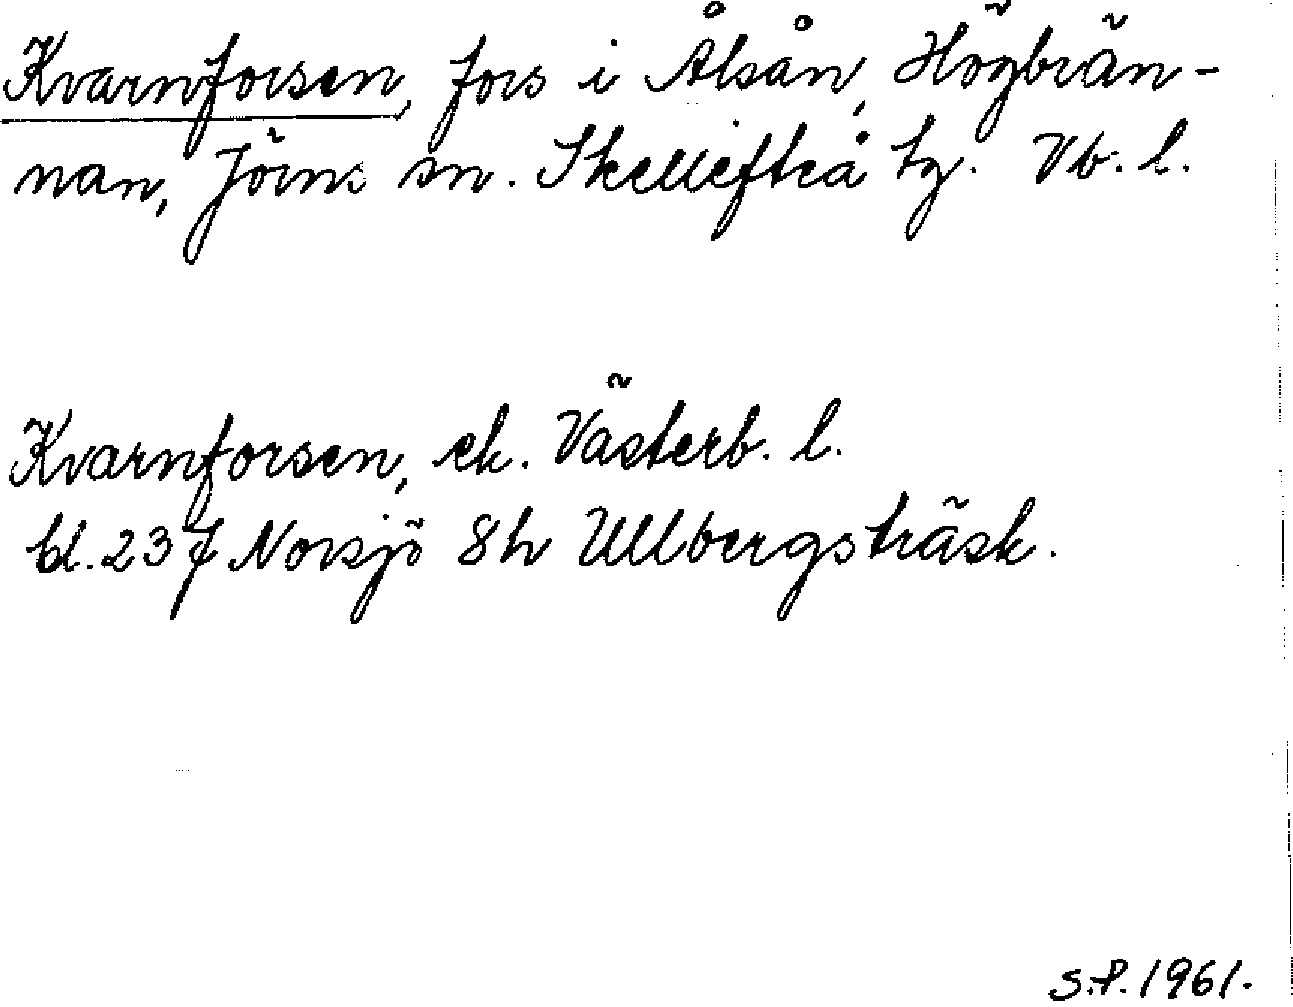 Kvarnforsen, fors i Ålsån, Högbrän-
nan, Jörns sn. Skellefteå tg. Vb. l.
Kvarnforsen, ek. Västerb. l.
bl. 237 Norsjö 8h Ullbergsträsk.
S.P. 1961.